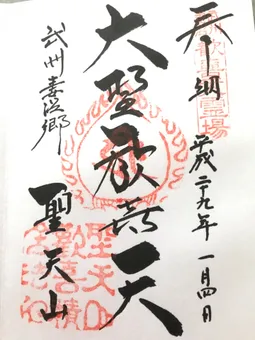 奉納
平成二十九年 一月四日
大聖歓喜天
武州妻沼郷
聖天山